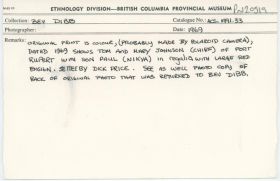 ETHNOLOGY DIVISION—BRITISH COLUMBIA PROVINCIAL MUSEUM PN20919
Collection: BEV DIBB Catalogue No.:
Photographer: Date: 1969
Remarks:
ORIGINAL PRINT IS COLOUR, (PROBABLY MADE BY POLAROID CAMERA),
DATED 1969 SHOWS TOM AND MARY JOHNSON (CHIEF) OF FORT
RUPERT WITH SON PAUL IN REGALIA WITH LARGE RED
ENSIGN. BY DICK PRICE. SEE AS WELL PHOTO COPY OF
BACK OF ORIGINAL PHOTO THAT WAS RETURNED TO BEV DIBB.